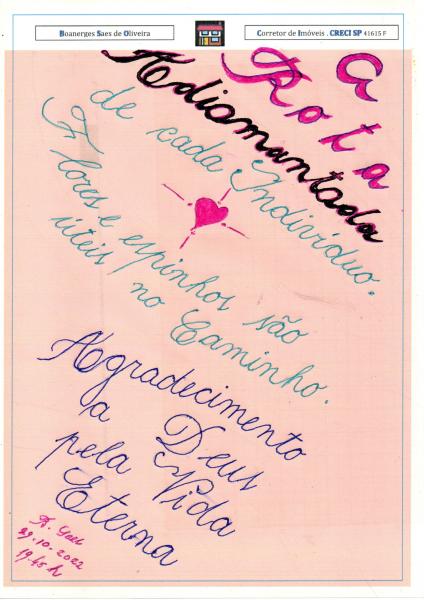 Boanerges Saes de Oliveira
Corretor de Imóveis . CRECI SP 41615 F
A
Rota
Adiamantada
de cada Indivíduo.
Flores e espinhos são
úteis no Caminho.
Agradecimento
a Deus
pela Vida
Eterna
29.10.2022
19:45 h